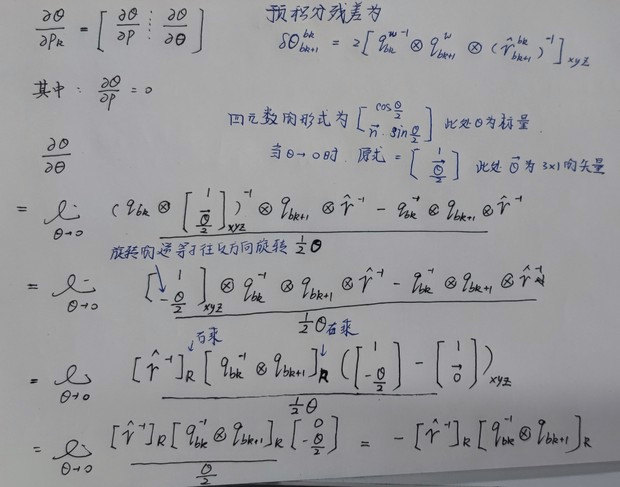 ∂θ/∂P_k = [ ∂θ/∂P ⋮ ∂θ/∂θ ]
预积分残差为
δθ_{bk+1}^{bk} = 2[ q_{bk}^{w -1} ⊗ q_{bk+1}^{w} ⊗ (r̂_{bk+1}^{bk})^{-1} ]_{xyz}
其中: ∂θ/∂P = 0
四元数的形式为 [cos θ/2 ; n⃗·sin θ/2] 此处θ为标量
当θ→0时, 原式 = [1 ; θ⃗/2] 此处 θ⃗ 为3x1的矢量
∂θ/∂θ
= lim_{θ→0} (q_{bk} ⊗ [1 ; θ/2]_{xyz})^{-1} ⊗ q_{bk+1} ⊗ r̂^{-1} - q_{bk}^{-1} ⊗ q_{bk+1} ⊗ r̂^{-1}
旋转的逆等于往反方向旋转 ½θ
= lim_{θ→0} [1 ; -θ/2]_{xyz} ⊗ q_{bk}^{-1} ⊗ q_{bk+1} ⊗ r̂^{-1} - q_{bk}^{-1} ⊗ q_{bk+1} ⊗ r̂^{-1} / ½θ
右乘 右乘
= lim_{θ→0} [r̂^{-1}]_R [q_{bk}^{-1} ⊗ q_{bk+1}]_R ([1 ; -θ/2] - [1 ; 0⃗])_{xyz} / ½θ
= lim_{θ→0} [r̂^{-1}]_R [q_{bk}^{-1} ⊗ q_{bk+1}]_R [0 ; -θ/2] / θ/2 = -[r̂^{-1}]_R [q_{bk}^{-1} ⊗ q_{bk+1}]_R